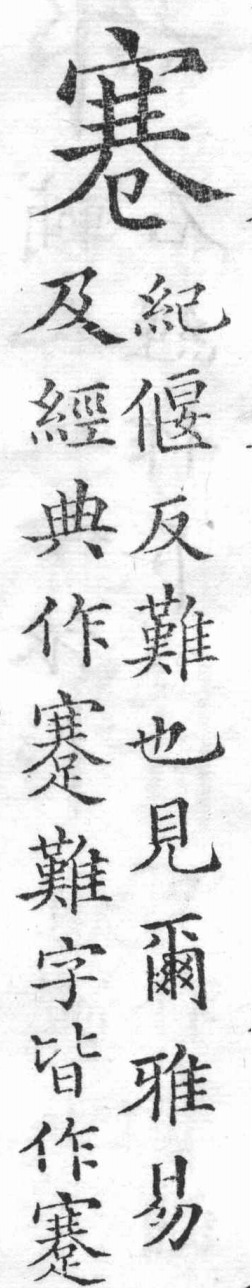 紀偃反難也見爾雅易
及經典作蹇難字皆作蹇